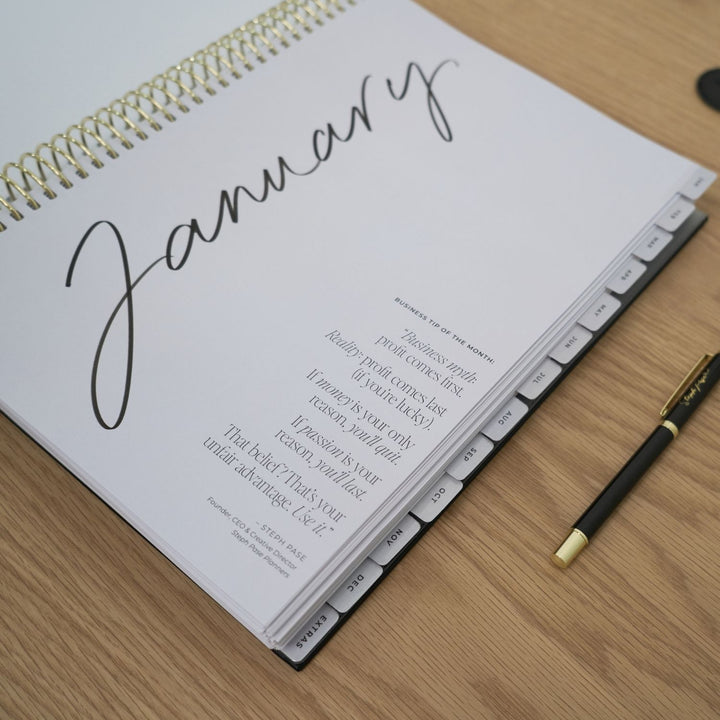 January
BUSINESS TIP OF THE MONTH:
"Business myth:
profit comes first.
Reality: profit comes last
(if you're lucky).
If money is your only
reason, you'll quit.
If passion is your
reason, you'll last.
That belief? That's your
unfair advantage. Use it."
- STEPH PASE
Founder, CEO & Creative Director
Steph Pase Planners
JAN
FEB
MAR
APR
MAY
JUN
JUL
AUG
SEP
OCT
NOV
DEC
EXTRAS